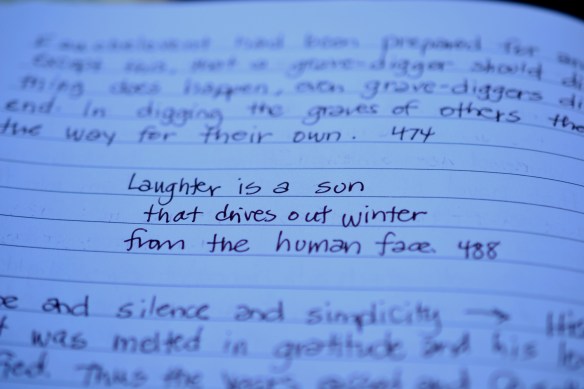 Emoshelement had been prepared for an
grave-digger should di
thing does happen, even grave-diggers di
end. In digging the graves of others the
the way for their own. 474
Laughter is a son
that drives out winter
from the human face. 488
e and silence and simplicity → His
t was melted in gratitude and his
fied. Thus the years